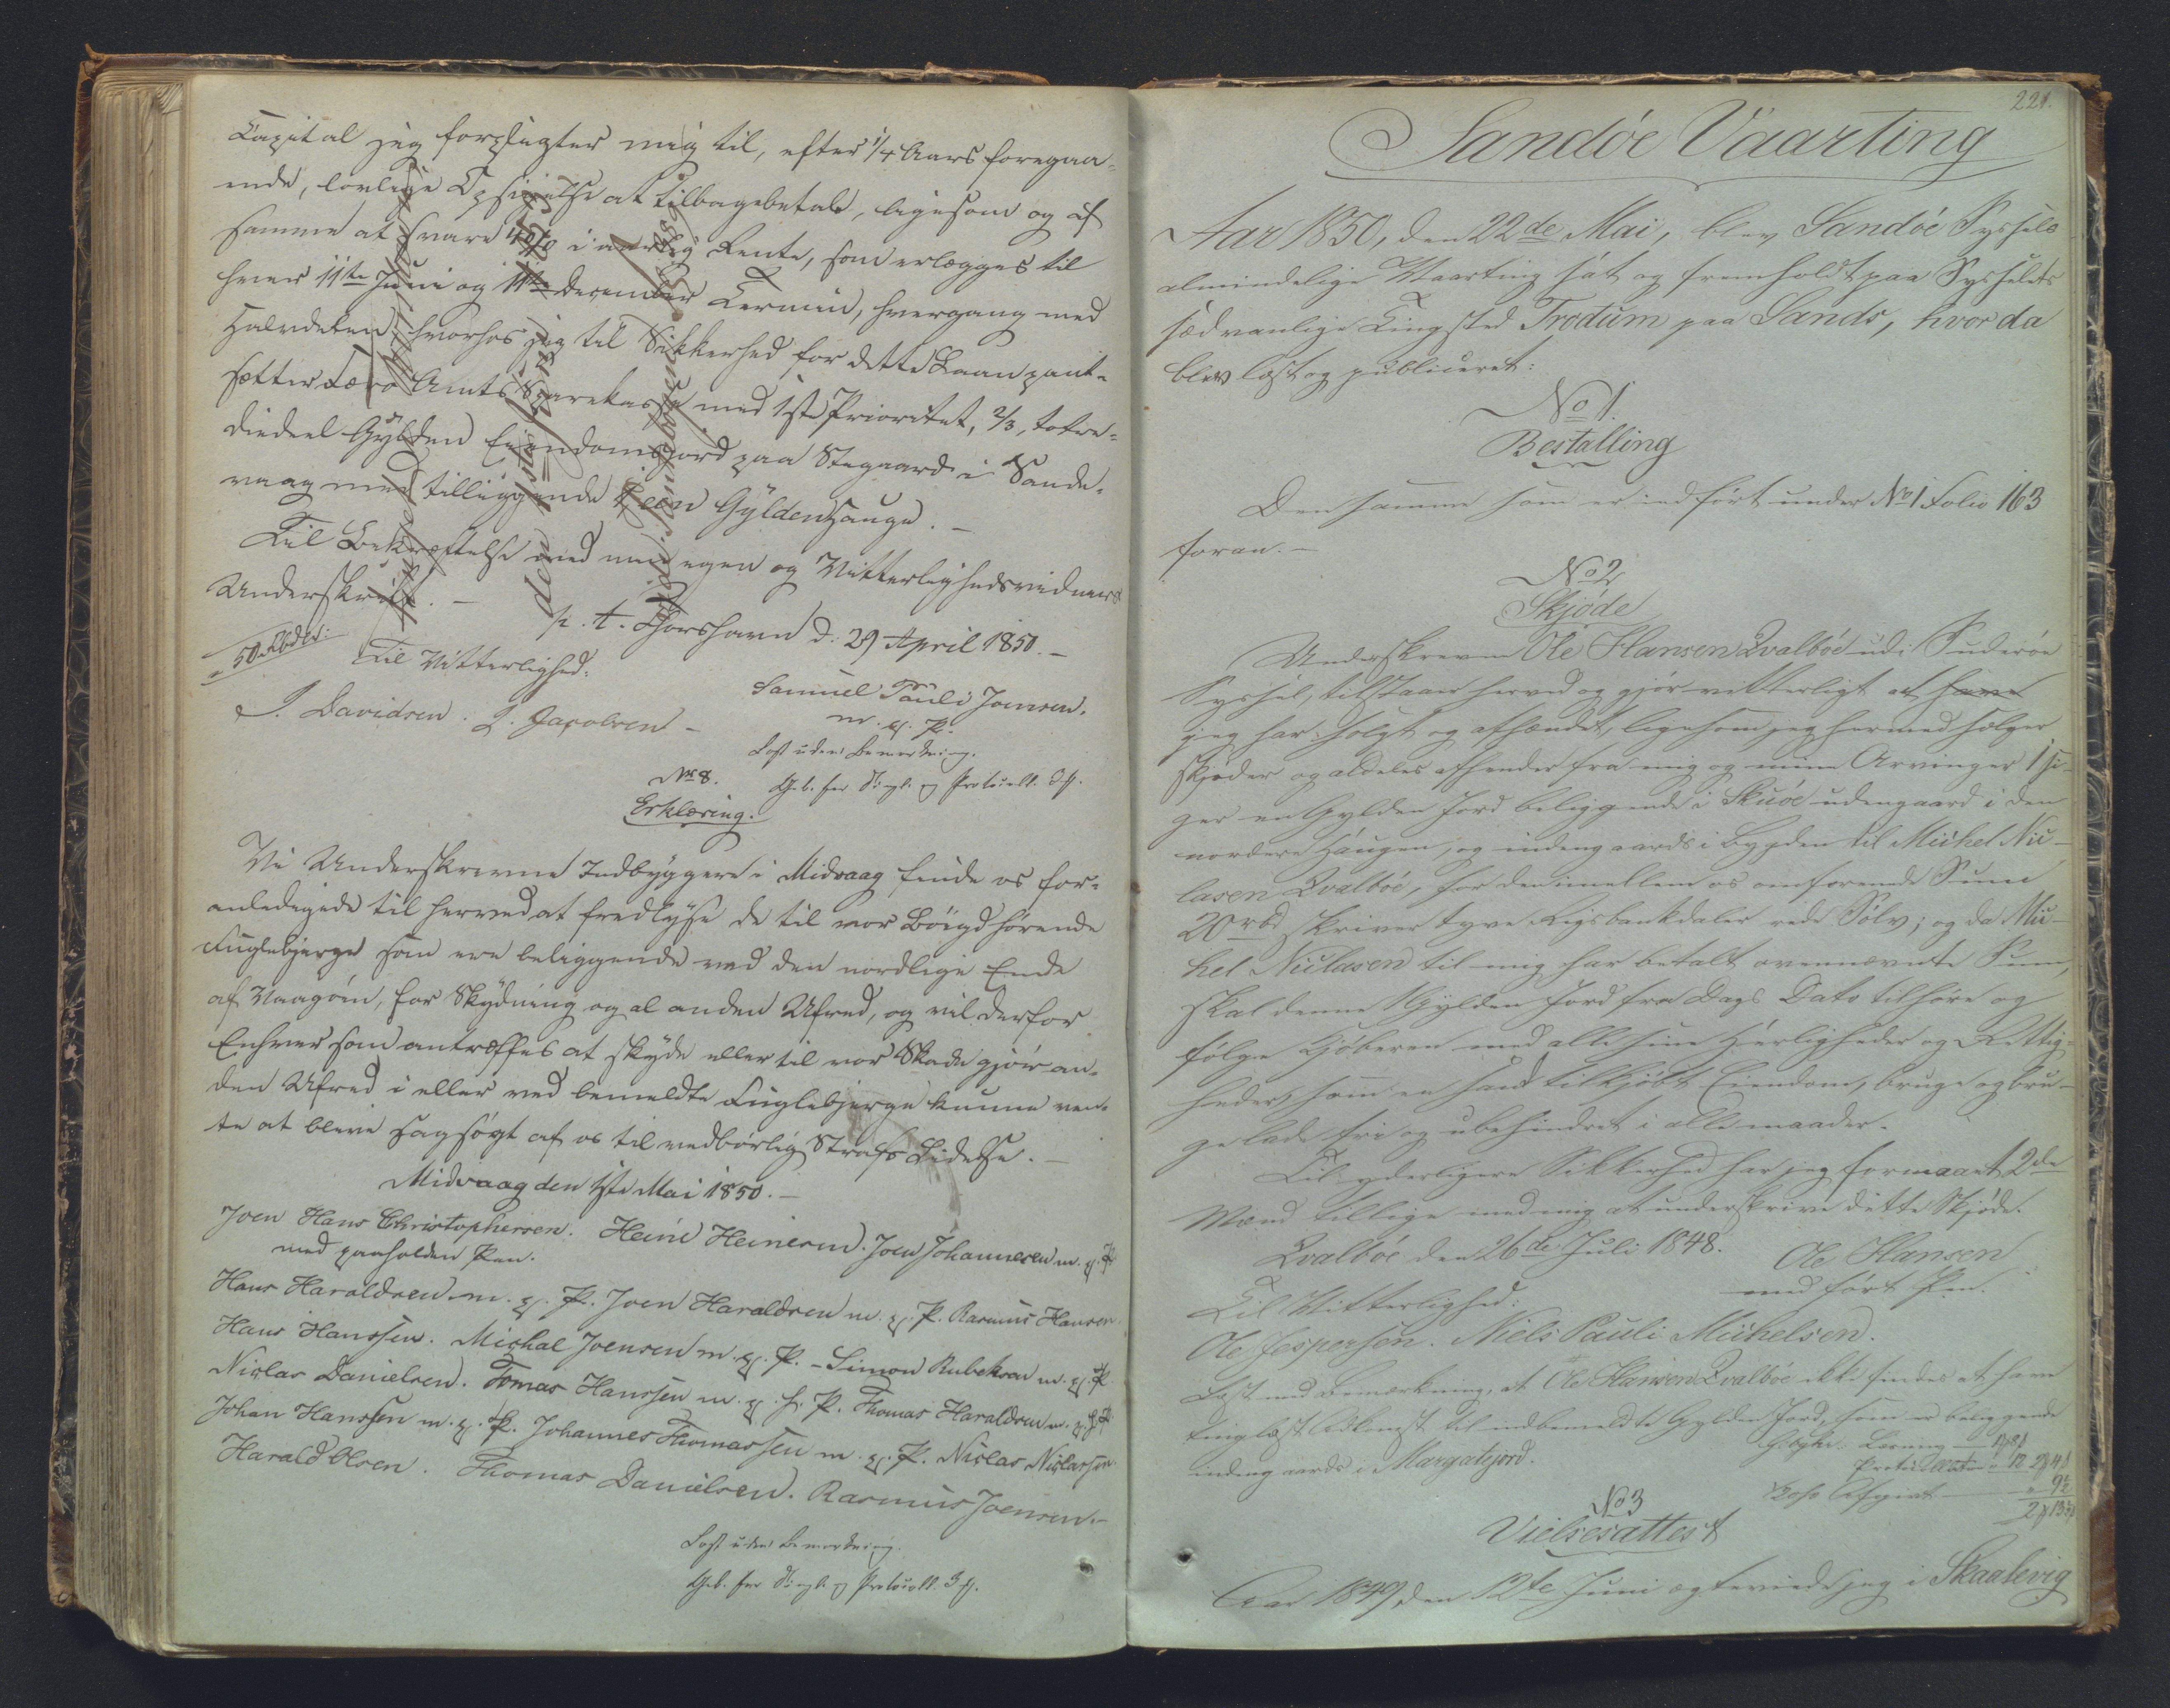 Capital jeg forpligter mig til, efter 1/4 Aars foregaa-
ende, lovlige Opsigelse at tilbagebetale, ligesom og af
samme at svare 4% i aarlig Rente, som erlægges til
hver 11te Juni og 11te December Termin, hvergang med
Halvdelen, hvorhos jeg til Sikkerhed for dette Laan pant-
sætter Færø Amts Sparekasse med 1ste Prioritet, 2/3, totre-
diedeel Gylden Eiendomsjord paa Stegaard i Sande-
vaag med tilliggende
Til Bekræftelse med min egen og Vitterlighedsvidners
Underskrift. –
p. t. Thorshavn d: 29 April 1850. –
50 Rbdlr:
Til Vitterlighed:
Samuel Pauli Joensen.
J. Davidsen. J. Jacobsen –
m. f. P.
Læst uden Bemærkning.
Geb. for Tingl. og Protocoll. 3 f.
No 8.
Erklæring.
Vi Underskrevne Indbyggere i Midvaag finde os for-
anledigede til herved at fredlyse de til vor Bøigd hørende
Fuglebjerge som ere beliggende ved den nordlige Ende
af Vaagøen, for Skydning og al anden Ufred, og vil derfor
Enhver som antræffes at skyde eller til vor Skade gjør an-
den Ufred i eller ved bemeldte Fuglebjerge kunne ven-
te at blive sagsøgt af os til vedbørlig Strafs Lidelse. –
Midvaag den 1ste Mai 1850. –
Joen Hans Christophersen. Heine Heinesen. Joen Johannesen m. f. P.
med paaholden Pen.
Hans Haraldsen m. f. P. Joen Haraldsen m. f. P. Rasmus Hansen.
Hans Hanssen. Michal Joensen m. f. P. – Simon Rubeksen m. f. P.
Niclas Danielsen. Tomas Hanssen m. f. P. Thomas Haraldsen m. f. P.
Johan Hanssen m. f. P. Johannes Thomassen m. f. P. Niclas Niclassen
Harald Olsen. Thomas Danielsen. Rasmus Joensen. –
Læst uden Bemærkning.
Geb. for Tingl. og Protocoll. 3 f.
221.
Sandöe Vaarting
Aar 1850, den 22de Mai, blev Sandöe Syssels
almindelige Vaarting sat og fremholdt paa Sysselets
sædvanlige Tingsted Trödum paa Sands, hvor da
blev læst og publiceret:
No 1.
Bestalling
Den samme som er indført under No 1 Folio 163
foran. –
No 2
Skjøde
Underskrevne Ole Hansen Qvalböe udi Suderöe
Syssel, tilstaaer herved og gjør vitterligt at have
jeg har solgt og afhændet, ligesom jeg hermed sælger
skjøder og aldeles afhender fra mig og mine Arvinger 1 si-
ger en Gylden Jord beliggende i Skuöe udengaard i den
nordere Haugen, og indengaards i Bygden til Michel Nic-
lasen Qvalböe, for den imellem os omforenede Sum
20 rbd skriver tyve Rigsbankdaler rede Sølv; og da Mic-
hel Niclasen til mig har betalt ovennævnte Sum,
skal denne 1 Gylden Jord fra Dags Dato tilhøre og
følge Kjøberen med alle sine Herligheder og Rettig-
heder, som en sand tilkjøbt Eiendom, bruge og bru-
ge lade fri og ubehindret i alle maader.
Til yderligere Sikkerhed har jeg formaaet 2de
Mænd tillige med mig at underskrive dette Skjøde.
Qvalböe den 26de Juli 1848.
Ole Hansen
Til Vitterlighed:
med ført Pen.
Ole Jespersen. Niels Pauli Michelsen.
Læst med Bemærkning, at Ole Hansen Qvalböe ikke findes at have
tinglæst Adkomst til indbemeldte Gylden Jord, som er beliggende
indengaards i Margatejord.
No 3
Vielsesattest
Aar 1849, den 12te Juni ægteviede jeg i Skaalevig